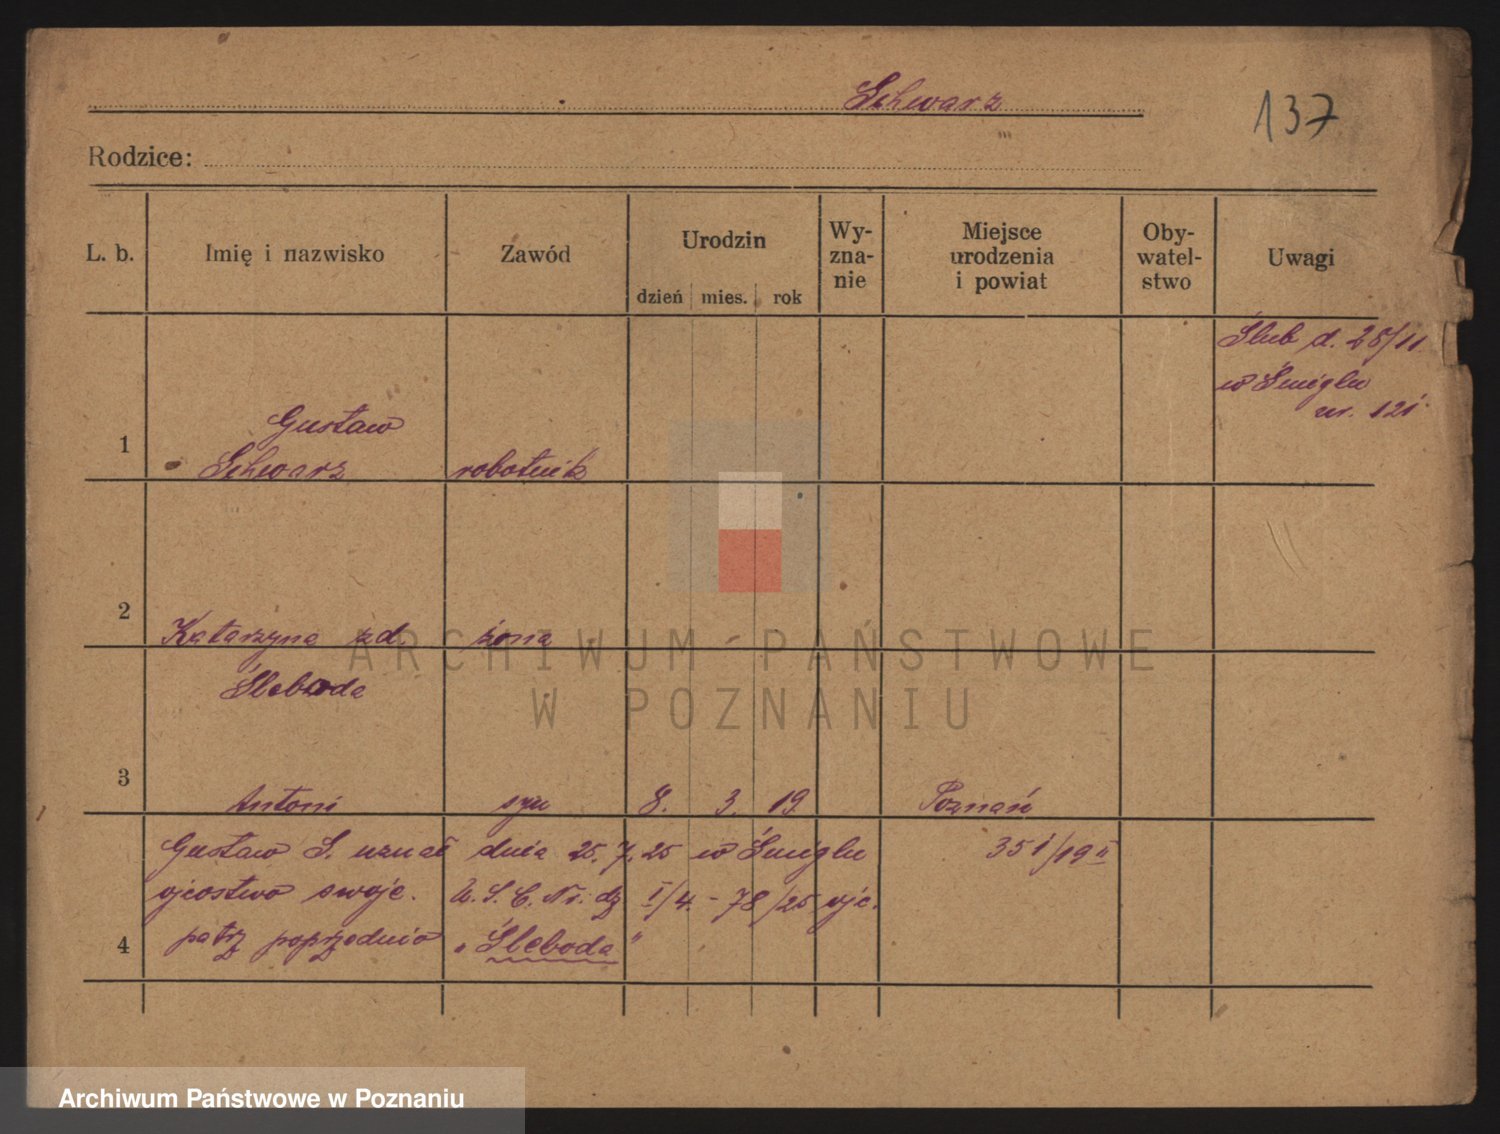 Schwarz
137
Rodzice:
L. b. Imię i nazwisko Zawód Urodzin dzień mies. rok Wy-zna-nie Miejsce urodzenia i powiat Oby-watel-stwo Uwagi
Ślub d. 28/11
w Śmiglu
nr. 121
Gustaw
1 Schwarz robotnik
2 Katarzyna zd. żona
Śleboda
3 Antoni syn 8. 3. 19 Poznań
Gustaw S. uznał dnia 25. 7. 25 w Śmiglu 351/19 II
ojcostwo swoje. U. S. C. Nr. dz I/4. - 78/25 ojc.
4 patrz poprzednio „Śleboda”
ARCHIWUM PAŃSTWOWE
W POZNANIU
Archiwum Państwowe w Poznaniu